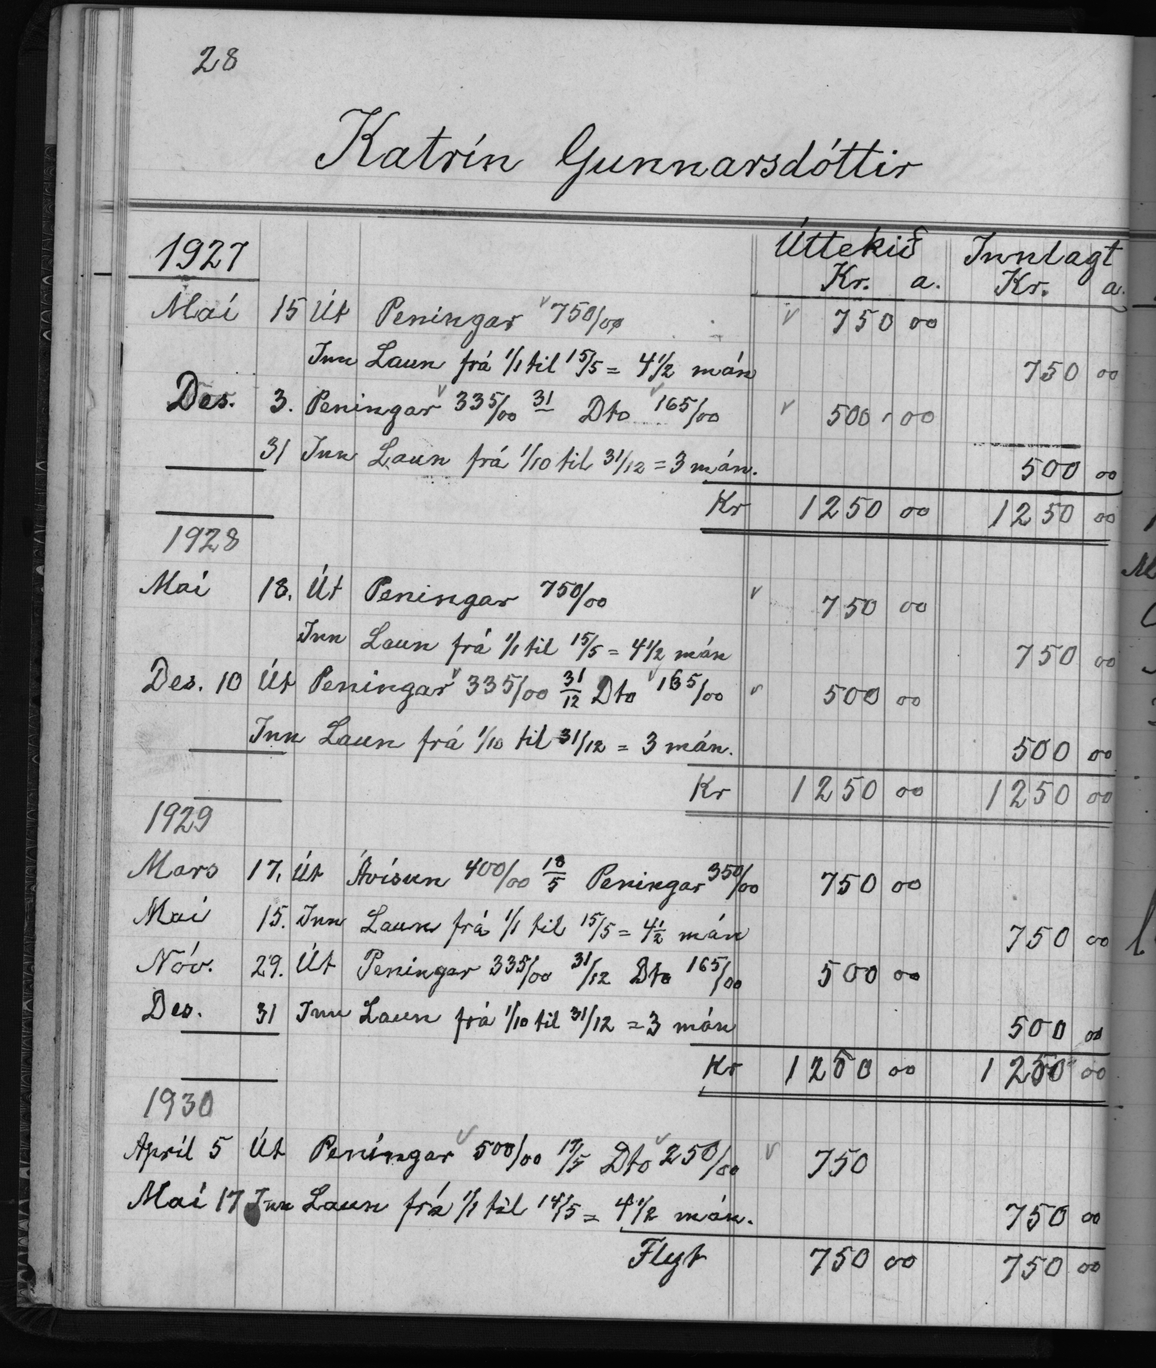 28
Katrín Gunnarsdóttir
1927 Úttekið Innlagt
Kr. a. Kr. a.
Maí 15 Út Peningar 750/00 750 00
Inn Laun frá 1/1 til 15/5 = 4 1/2 mán 750 00
Des. 3. Peningar 335/00 31 Dto 165/00 500 00
31 Inn Laun frá 1/10 til 31/12 = 3 mán. 500 00
Kr 1250 00 1250 00
1928
Maí 18. Út Peningar 750/00 750 00
Inn Laun frá 1/1 til 15/5 = 4 1/2 mán 750 00
Des. 10 Út Peningar 335/00 31/12 Dto 165/00 500 00
Inn Laun frá 1/10 til 31/12 = 3 mán. 500 00
Kr 1250 00 1250 00
1929
Mars 17. Út Ávísun 400/00 18/5 Peningar 350/00 750 00
Maí 15. Inn Laun frá 1/1 til 15/5 = 4 1/2 mán 750 00
Nóv. 29. Út Peningar 335/00 31/12 Dto 165/00 500 00
Des. 31 Inn Laun frá 1/10 til 31/12 = 3 mán 500 00
Kr 1250 00 1250 00
1930
Apríl 5 Út Peningar 500/00 17/5 Dto 250/00 750
Maí 17 Inn Laun frá 1/1 til 14/5 = 4 1/2 mán. 750 00
Flyt 750 00 750 00